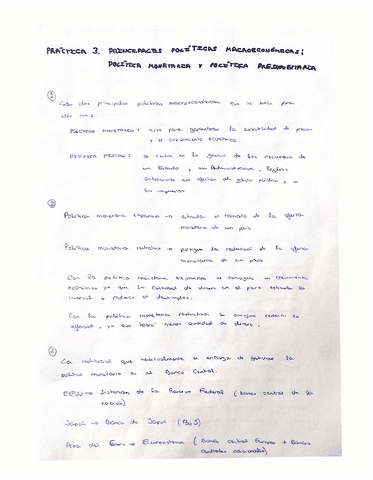 PRÁCTICA 3. PRINCIPALES POLÍTICAS MACROECONÓMICAS:
POLÍTICA MONETARIA Y POLÍTICA PRESUPUESTARIA
1
Las dos principales políticas macroeconómicas que se usan para
ello son:
POLÍTICA MONETARIA: sirve para garantizar la estabilidad de precios
y el crecimiento económico
POLÍTICA FISCAL: se centra en la gestión de los recursos de
un Estado y su Administración. Engloba
actuaciones que afectan al gasto público y a
los impuestos
2
Política monetaria expansiva → estudia el tamaño de la oferta
monetaria de un país
Política monetaria restrictiva → persigue la reducción de la oferta
monetaria de un país
Con la política monetaria expansiva se consigue un crecimiento
económico ya que la cantidad de dinero en el país estimula la
inversión y reduce el desempleo.
Con la política monetaria restrictiva se consigue reducir la
inflación, ya que habrá menos cantidad de dinero.
3
La institución que habitualmente se encarga de gestionar la
política monetaria es el Banco Central.
EEUU → Sistema de la Reserva Federal (banco central de la
nación)
Japón → Banco de Japón (BoJ)
Área del Euro → Eurosistema (Banco Central Europeo + Bancos
centrales nacionales)